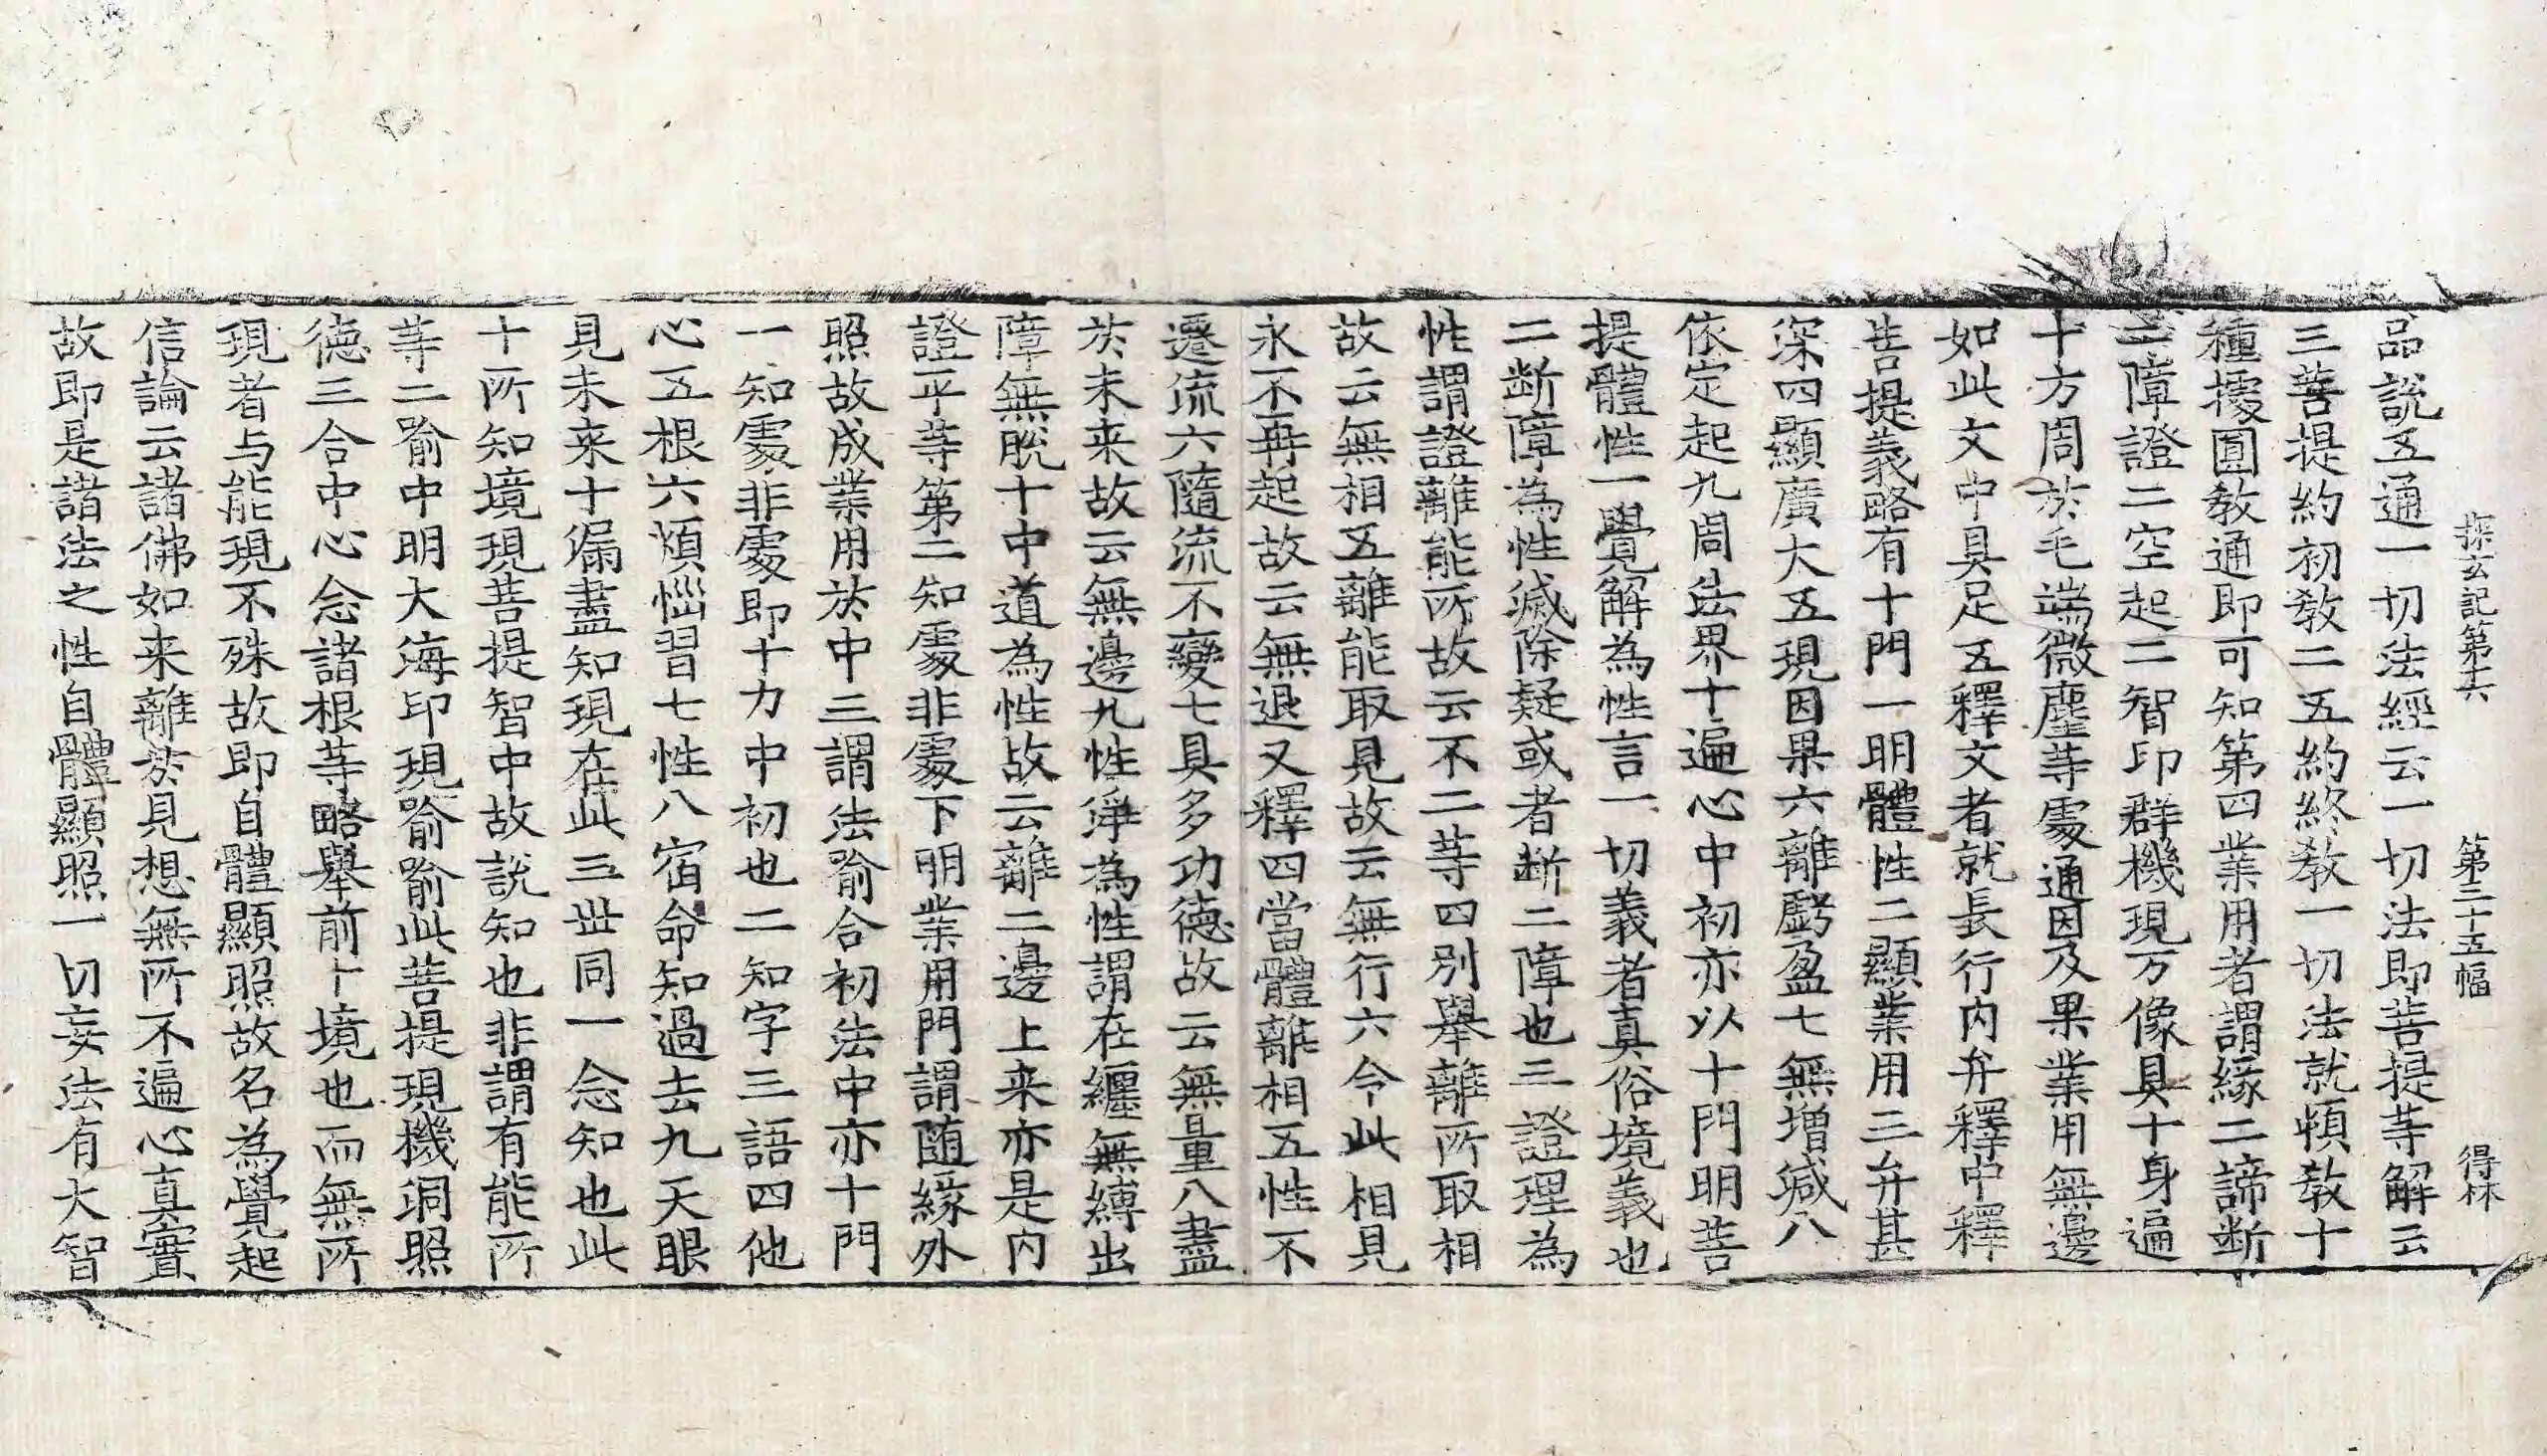 探玄記第十六 第三十五幅 得林
品說五通一切法經云一切法即菩提等解云
三菩提約初教二五約終教一切法就頓教十
種據圓教通即可知第四業用者謂緣二諦斷
二障證二空起二智印群機現万像具十身遍
十方周扵毛端微塵等處通因及果業用無邊
如此文中具足五釋文者就長行内弁釋中釋
菩提義略有十門一明體性二顯業用三弁甚
深四顯廣大五現因果六離虧盈七無增減八
依定起九周法界十遍心中初亦以十門明菩
提體性一覺解為性言一切義者真俗境義也
二斷障為性滅除疑或者斷二障也三證理為
性謂證離能所故云不二等四別舉離所取相
故云無相五離能取見故云無行六令此相見
永不再起故云無退又釋四當體離相五性不
遷流六隨流不變七具多功德故云無量八盡
扵未来故云無邊九性淨為性謂在纏無縛出
障無脫十中道為性故云離二邊上来亦是内
證平等第二知處非處下明業用門謂随緣外
照故成業用扵中三謂法喻合初法中亦十門
一知處非處即十力中初也二知字三語四他
心五根六煩惱習七性八宿命知過去九天眼
見未来十漏盡知現在此三世同一念知也此
十所知境現菩提智中故說知也非謂有能所
等二喻中明大海印現喻喻此菩提現機洞照
德三合中心念諸根等略舉前十境也而無所
現者与能現不殊故即自體顯照故名為覺起
信論云諸佛如来離扵見想無所不遍心真實
故即是諸法之性自體顯照一切妄法有大智